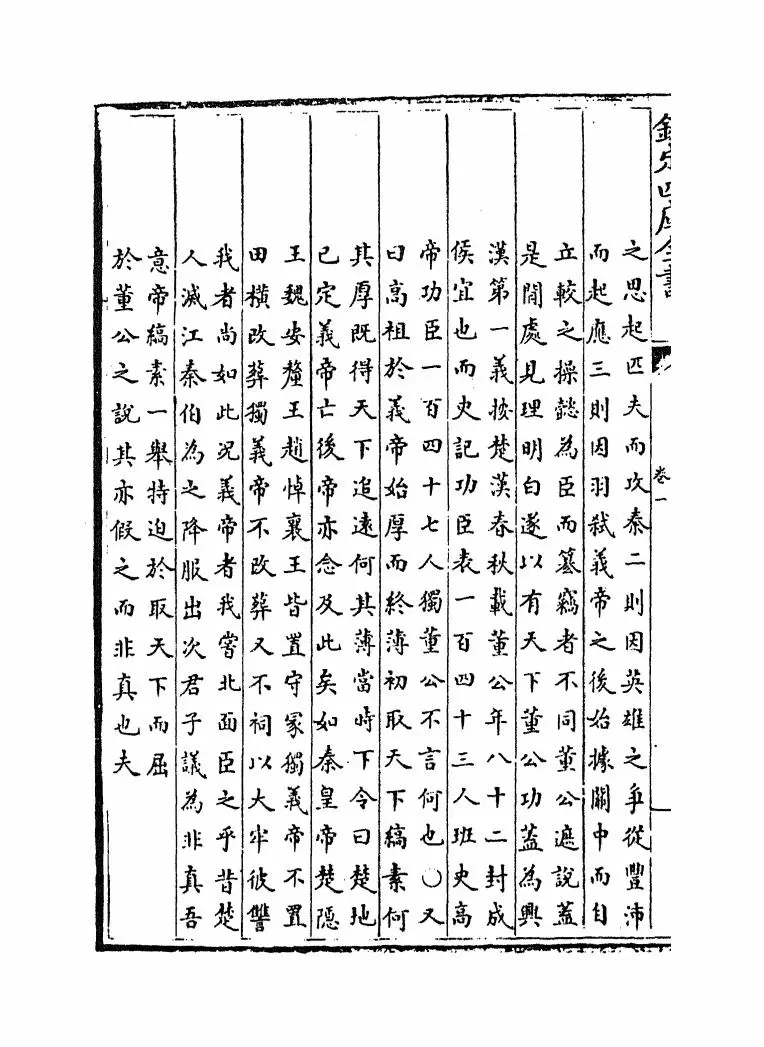 欽定四庫全書
卷一
之思起匹夫而攻秦二則因英雄之爭從豐沛
而起應三則因羽弑義帝之後始據關中而自
立較之操懿為臣而簒竊者不同董公遮說蓋
是閒處見理明白遂以有天下董公功蓋為興
漢第一義按楚漢春秋載董公年八十二封成
侯宜也而史記功臣表一百四十三人班史高
帝功臣一百四十七人獨董公不言何也○又
曰高祖於義帝始厚而終薄初取天下縞素何
其厚既得天下追遠何其薄當時下令曰楚地
已定義帝亡後帝亦念及此矣如秦皇帝楚隱
王魏安釐王趙悼襄王皆置守冢獨義帝不置
田橫改葬獨義帝不改葬又不祠以大牢彼讐
我者尚如此況義帝者我嘗北面臣之乎昔楚
人滅江秦伯為之降服出次君子議為非真吾
意帝縞素一舉特迫於取天下而屈
於董公之說其亦假之而非真也夫